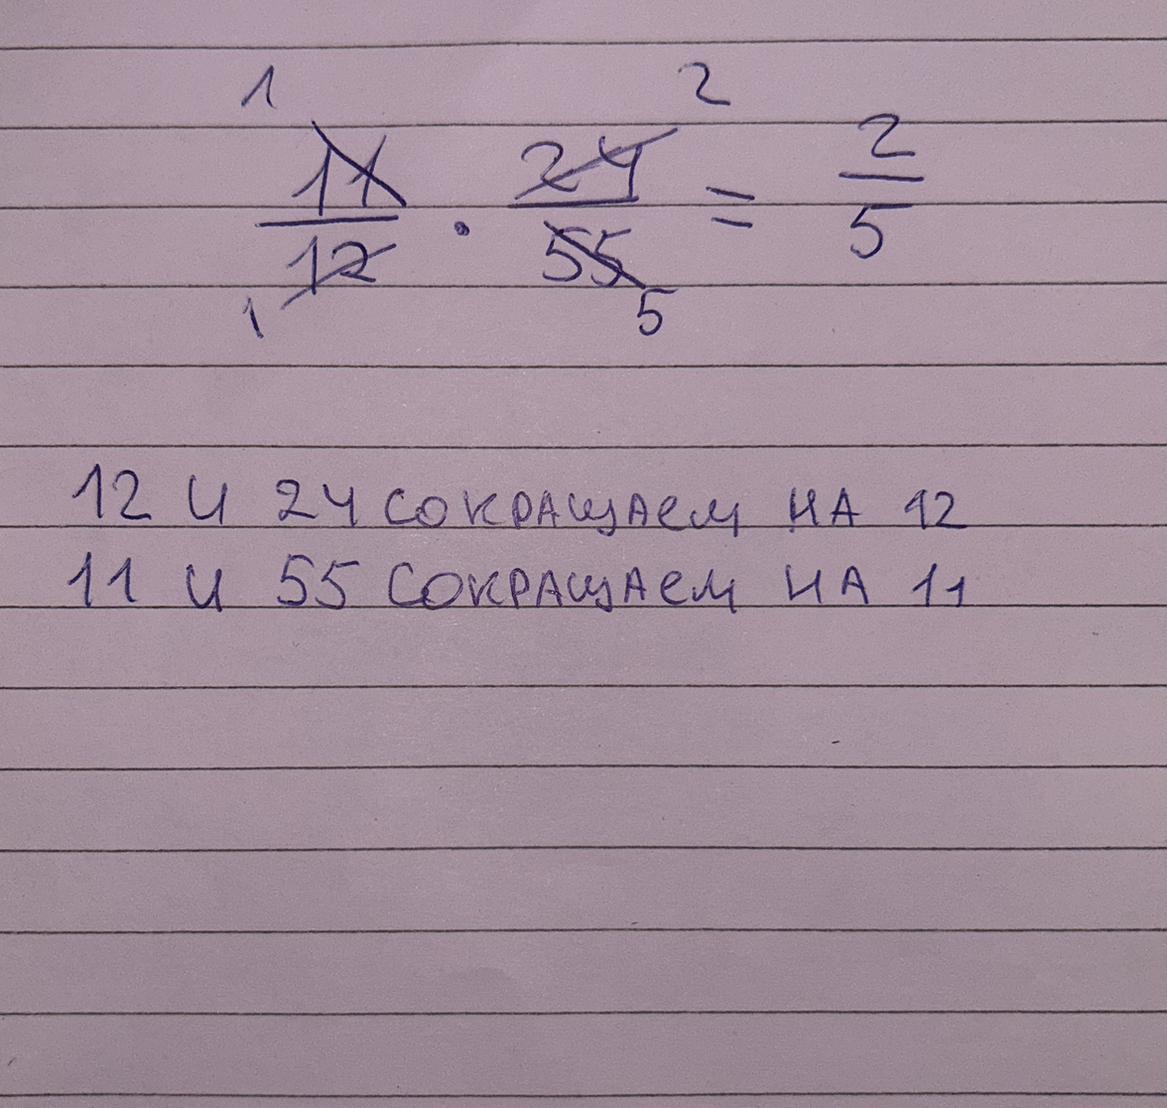 1 2
11/12 · 24/55 = 2/5
1 5
12 и 24 сокращаем на 12
11 и 55 сокращаем на 11